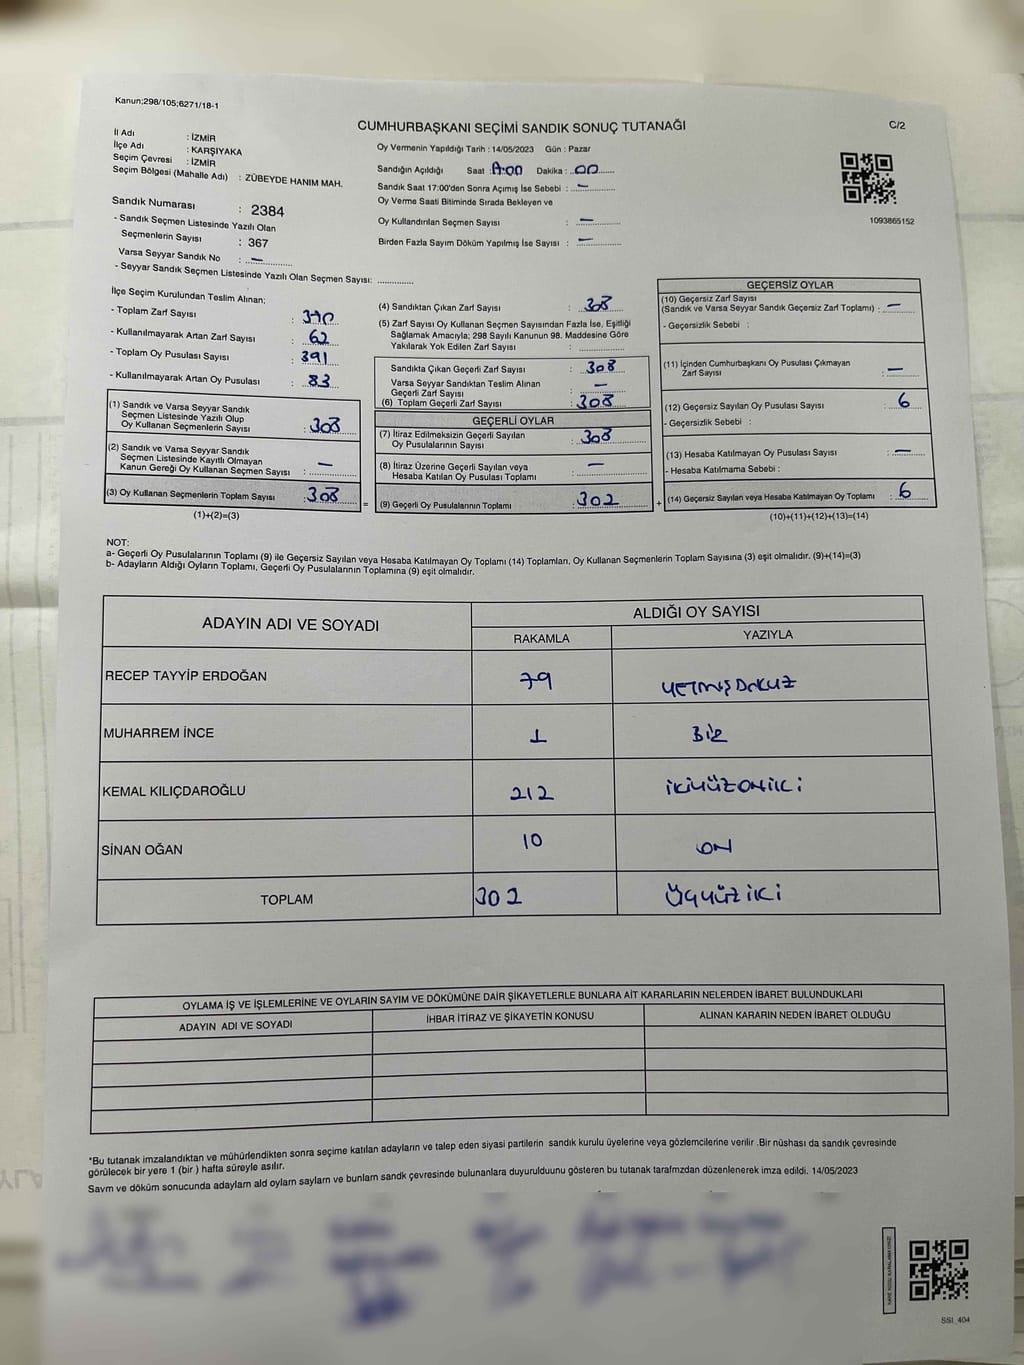 Kanun;298/105;6271/18-1
CUMHURBAŞKANI SEÇİMİ SANDIK SONUÇ TUTANAĞI
C/2
İl Adı : İZMİR
İlçe Adı : KARŞIYAKA
Seçim Çevresi : İZMİR
Seçim Bölgesi (Mahalle Adı) : ZÜBEYDE HANIM MAH.
Sandık Numarası : 2384
- Sandık Seçmen Listesinde Yazılı Olan
Seçmenlerin Sayısı : 367
Varsa Seyyar Sandık No : —
- Seyyar Sandık Seçmen Listesinde Yazılı Olan Seçmen Sayısı: ..............
Oy Vermenin Yapıldığı Tarih : 14/05/2023 Gün : Pazar
Sandığın Açıldığı Saat : 17:00 Dakika : 00
Sandık Saat 17:00'den Sonra Açımış İse Sebebi : —
Oy Verme Saati Bitiminde Sırada Bekleyen ve
Oy Kullandırılan Seçmen Sayısı : —
Birden Fazla Sayım Döküm Yapılmış İse Sayısı : —
1093865152
İlçe Seçim Kurulundan Teslim Alınan;
- Toplam Zarf Sayısı : 370
- Kullanılmayarak Artan Zarf Sayısı : 62
- Toplam Oy Pusulası Sayısı : 391
- Kullanılmayarak Artan Oy Pusulası : 83
(1) Sandık ve Varsa Seyyar Sandık
Seçmen Listesinde Yazılı Olup
Oy Kullanan Seçmenlerin Sayısı : 308
(2) Sandık ve Varsa Seyyar Sandık
Seçmen Listesinde Kayıtlı Olmayan
Kanun Gereği Oy Kullanan Seçmen Sayısı : —
(3) Oy Kullanan Seçmenlerin Toplam Sayısı : 308 =
(1)+(2)=(3)
(4) Sandıktan Çıkan Zarf Sayısı : 308
(5) Zarf Sayısı Oy Kullanan Seçmen Sayısından Fazla İse, Eşitliği
Sağlamak Amacıyla; 298 Sayılı Kanunun 98. Maddesine Göre
Yakılarak Yok Edilen Zarf Sayısı : ..............
Sandıkta Çıkan Geçerli Zarf Sayısı : 308
Varsa Seyyar Sandıktan Teslim Alınan
Geçerli Zarf Sayısı : —
(6) Toplam Geçerli Zarf Sayısı : 308
GEÇERLİ OYLAR
(7) İtiraz Edilmeksizin Geçerli Sayılan
Oy Pusulalarının Sayısı : 308
(8) İtiraz Üzerine Geçerli Sayılan veya
Hesaba Katılan Oy Pusulası Toplamı : —
(9) Geçerli Oy Pusulalarının Toplamı : 302 +
GEÇERSİZ OYLAR
(10) Geçersiz Zarf Sayısı
(Sandık ve Varsa Seyyar Sandık Geçersiz Zarf Toplamı) : —
- Geçersizlik Sebebi :
(11) İçinden Cumhurbaşkanı Oy Pusulası Çıkmayan
Zarf Sayısı : —
(12) Geçersiz Sayılan Oy Pusulası Sayısı : 6
- Geçersizlik Sebebi :
(13) Hesaba Katılmayan Oy Pusulası Sayısı : —
- Hesaba Katılmama Sebebi :
(14) Geçersiz Sayılan veya Hesaba Katılmayan Oy Toplamı : 6
(10)+(11)+(12)+(13)=(14)
NOT:
a- Geçerli Oy Pusulalarının Toplamı (9) ile Geçersiz Sayılan veya Hesaba Katılmayan Oy Toplamı (14) Toplamları, Oy Kullanan Seçmenlerin Toplam Sayısına (3) eşit olmalıdır. (9)+(14)=(3)
b- Adayların Aldığı Oyların Toplamı, Geçerli Oy Pusulalarının Toplamına (9) eşit olmalıdır.
ADAYIN ADI VE SOYADI
ALDIĞI OY SAYISI
RAKAMLA YAZIYLA
RECEP TAYYİP ERDOĞAN 79 YETMİŞDOKUZ
MUHARREM İNCE 1 BİR
KEMAL KILIÇDAROĞLU 212 İKİYÜZONİKİ
SİNAN OĞAN 10 ON
TOPLAM 302 ÜÇYÜZİKİ
OYLAMA İŞ VE İŞLEMLERİNE VE OYLARIN SAYIM VE DÖKÜMÜNE DAİR ŞİKAYETLERLE BUNLARA AİT KARARLARIN NELERDEN İBARET BULUNDUKLARI
ADAYIN ADI VE SOYADI İHBAR İTİRAZ VE ŞİKAYETİN KONUSU ALINAN KARARIN NEDEN İBARET OLDUĞU
*Bu tutanak imzalandıktan ve mühürlendikten sonra seçime katılan adayların ve talep eden siyasi partilerin sandık kurulu üyelerine veya gözlemcilerine verilir .Bir nüshası da sandık çevresinde
görülecek bir yere 1 (bir ) hafta süreyle asılır.
Savm ve döküm sonucunda adayların ald oyların sayların ve bunların sandk çevresinde bulunanlara duyurulduunu gösteren bu tutanak tarafmzdan düzenlenerek imza edildi. 14/05/2023
SSI_404